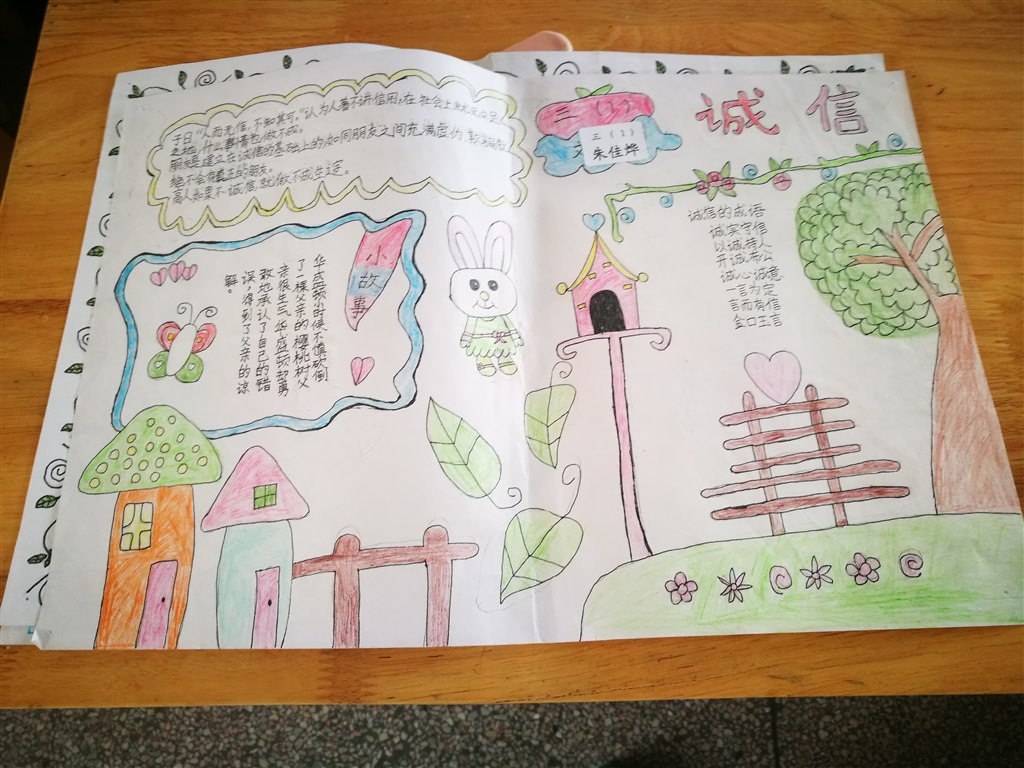 诚信
三（1）
三（1）
文
朱佳烨
子曰：“人而无信，不知其可。”认为人若不讲信用，在社会上就无立足
之地，什么事情也做不成。
朋友是建立在诚信的基础上的，如同朋友之间充满虚伪、欺骗，
绝不会有真正的朋友。
商人如果不诚信，就做不成生意。
小故事
华盛顿小时候不慎砍倒
了一棵父亲的樱桃树父
亲很生气，华盛顿却勇
敢地承认了自己的错
误，得到了父亲的谅
解。
诚信的成语
诚实守信
以诚待人
开诚布公
诚心诚意
一言为定
言而有信
金口玉言